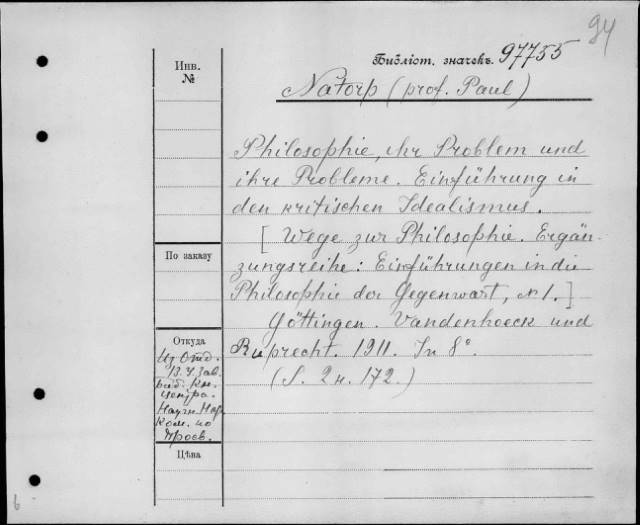 94
Библіот. значекъ. 97755
Инв.
№
Natorp (prof. Paul)
Philosophie, ihr Problem und
ihre Probleme. Einführung in
den kritischen Idealismus.
[Wege zur Philosophie. Ergän-
zungsreihe: Einführungen in die
Philosophie der Gegenwart, № 1.]
Göttingen. Vandenhoeck und
Ruprecht. 1911. In 8°.
(S. 2 н. 172.)
По заказу
Откуда
Из Отд.
Зав.
Кн.
центра.
Научн.
Ком. по
Просв.
Цѣна
6